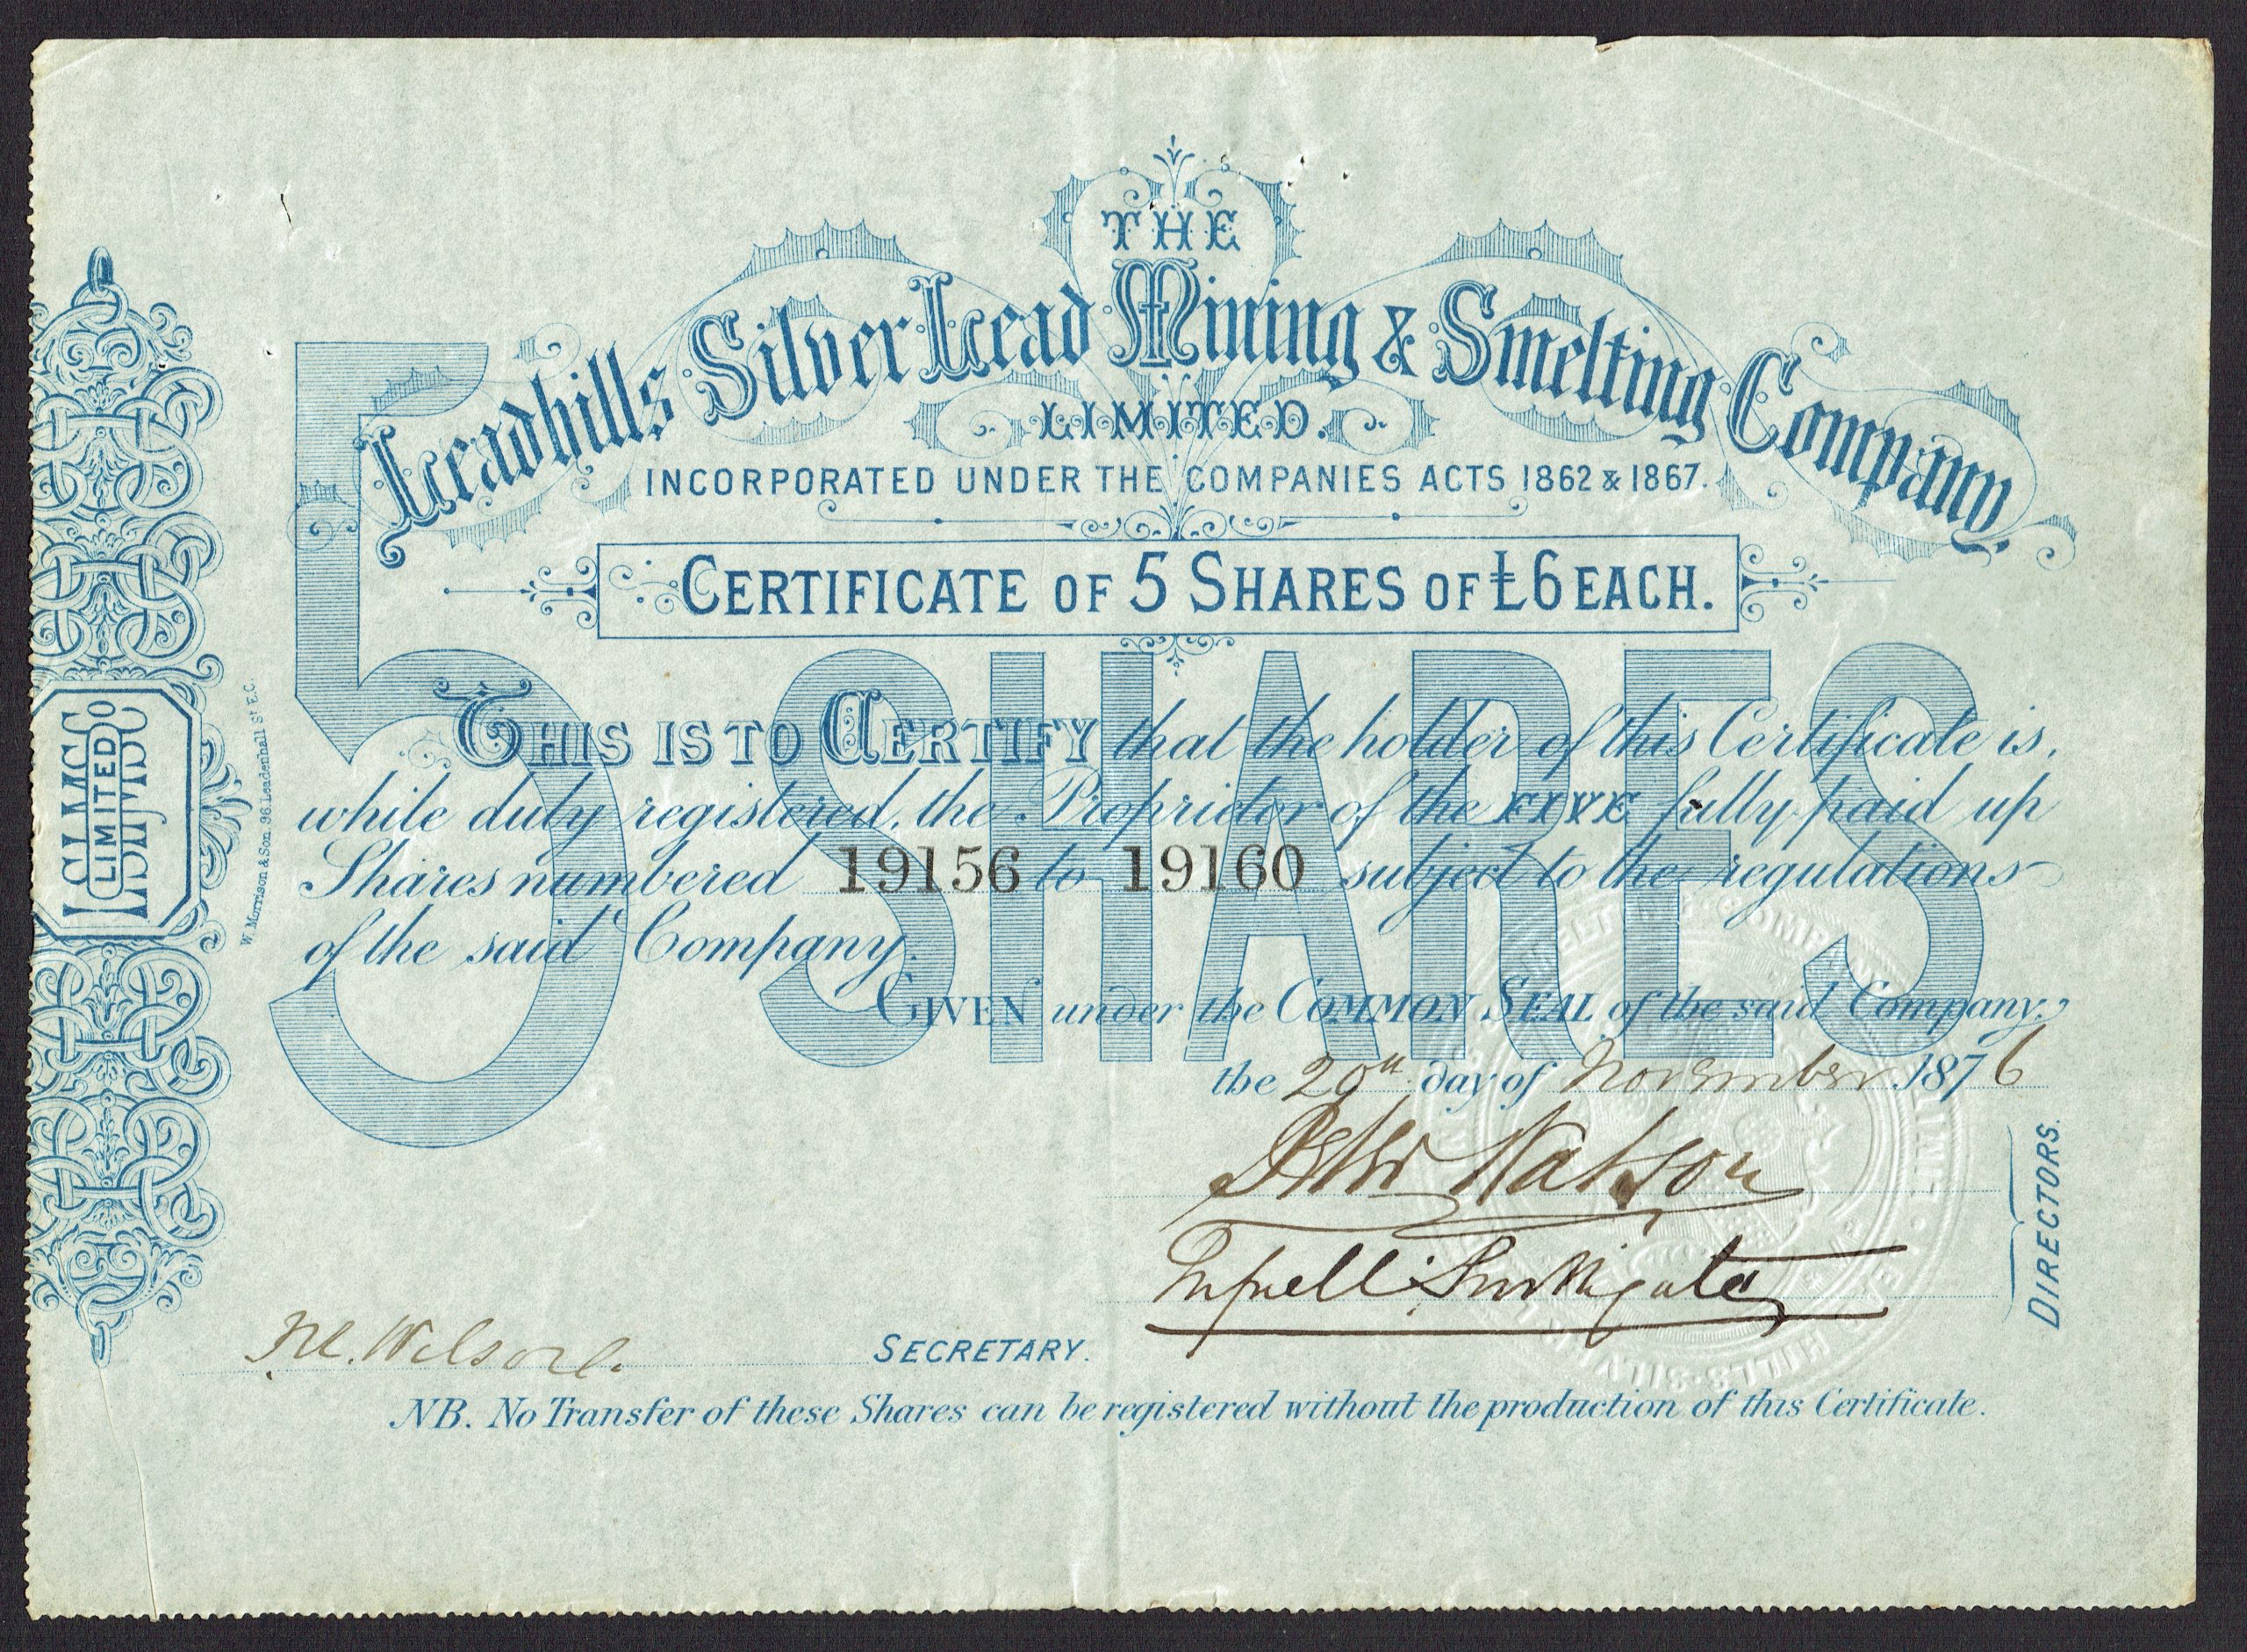 THE
Leadhills Silver Lead Mining & Smelting Company
LIMITED.
INCORPORATED UNDER THE COMPANIES ACTS 1862 & 1867.
CERTIFICATE OF 5 SHARES OF £6 EACH.
5 SHARES
THIS IS TO CERTIFY that the holder of this Certificate is,
while duly registered, the Proprietor of the FIVE fully paid up
Shares numbered 19156 to 19160 subject to the regulations
of the said Company.
GIVEN under the COMMON SEAL of the said Company,
the 20th day of November 1876
Peter Watson
DIRECTORS.
M. Wilson SECRETARY.
NB. No Transfer of these Shares can be registered without the production of this Certificate.
LIMITED
W. Morrison & Son 96 Leadenhall St E.C.